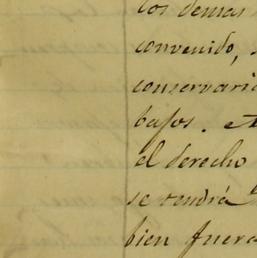 los demas
convenido,
conservari
bajos. A
el derecho
se tendrá
bien fuera